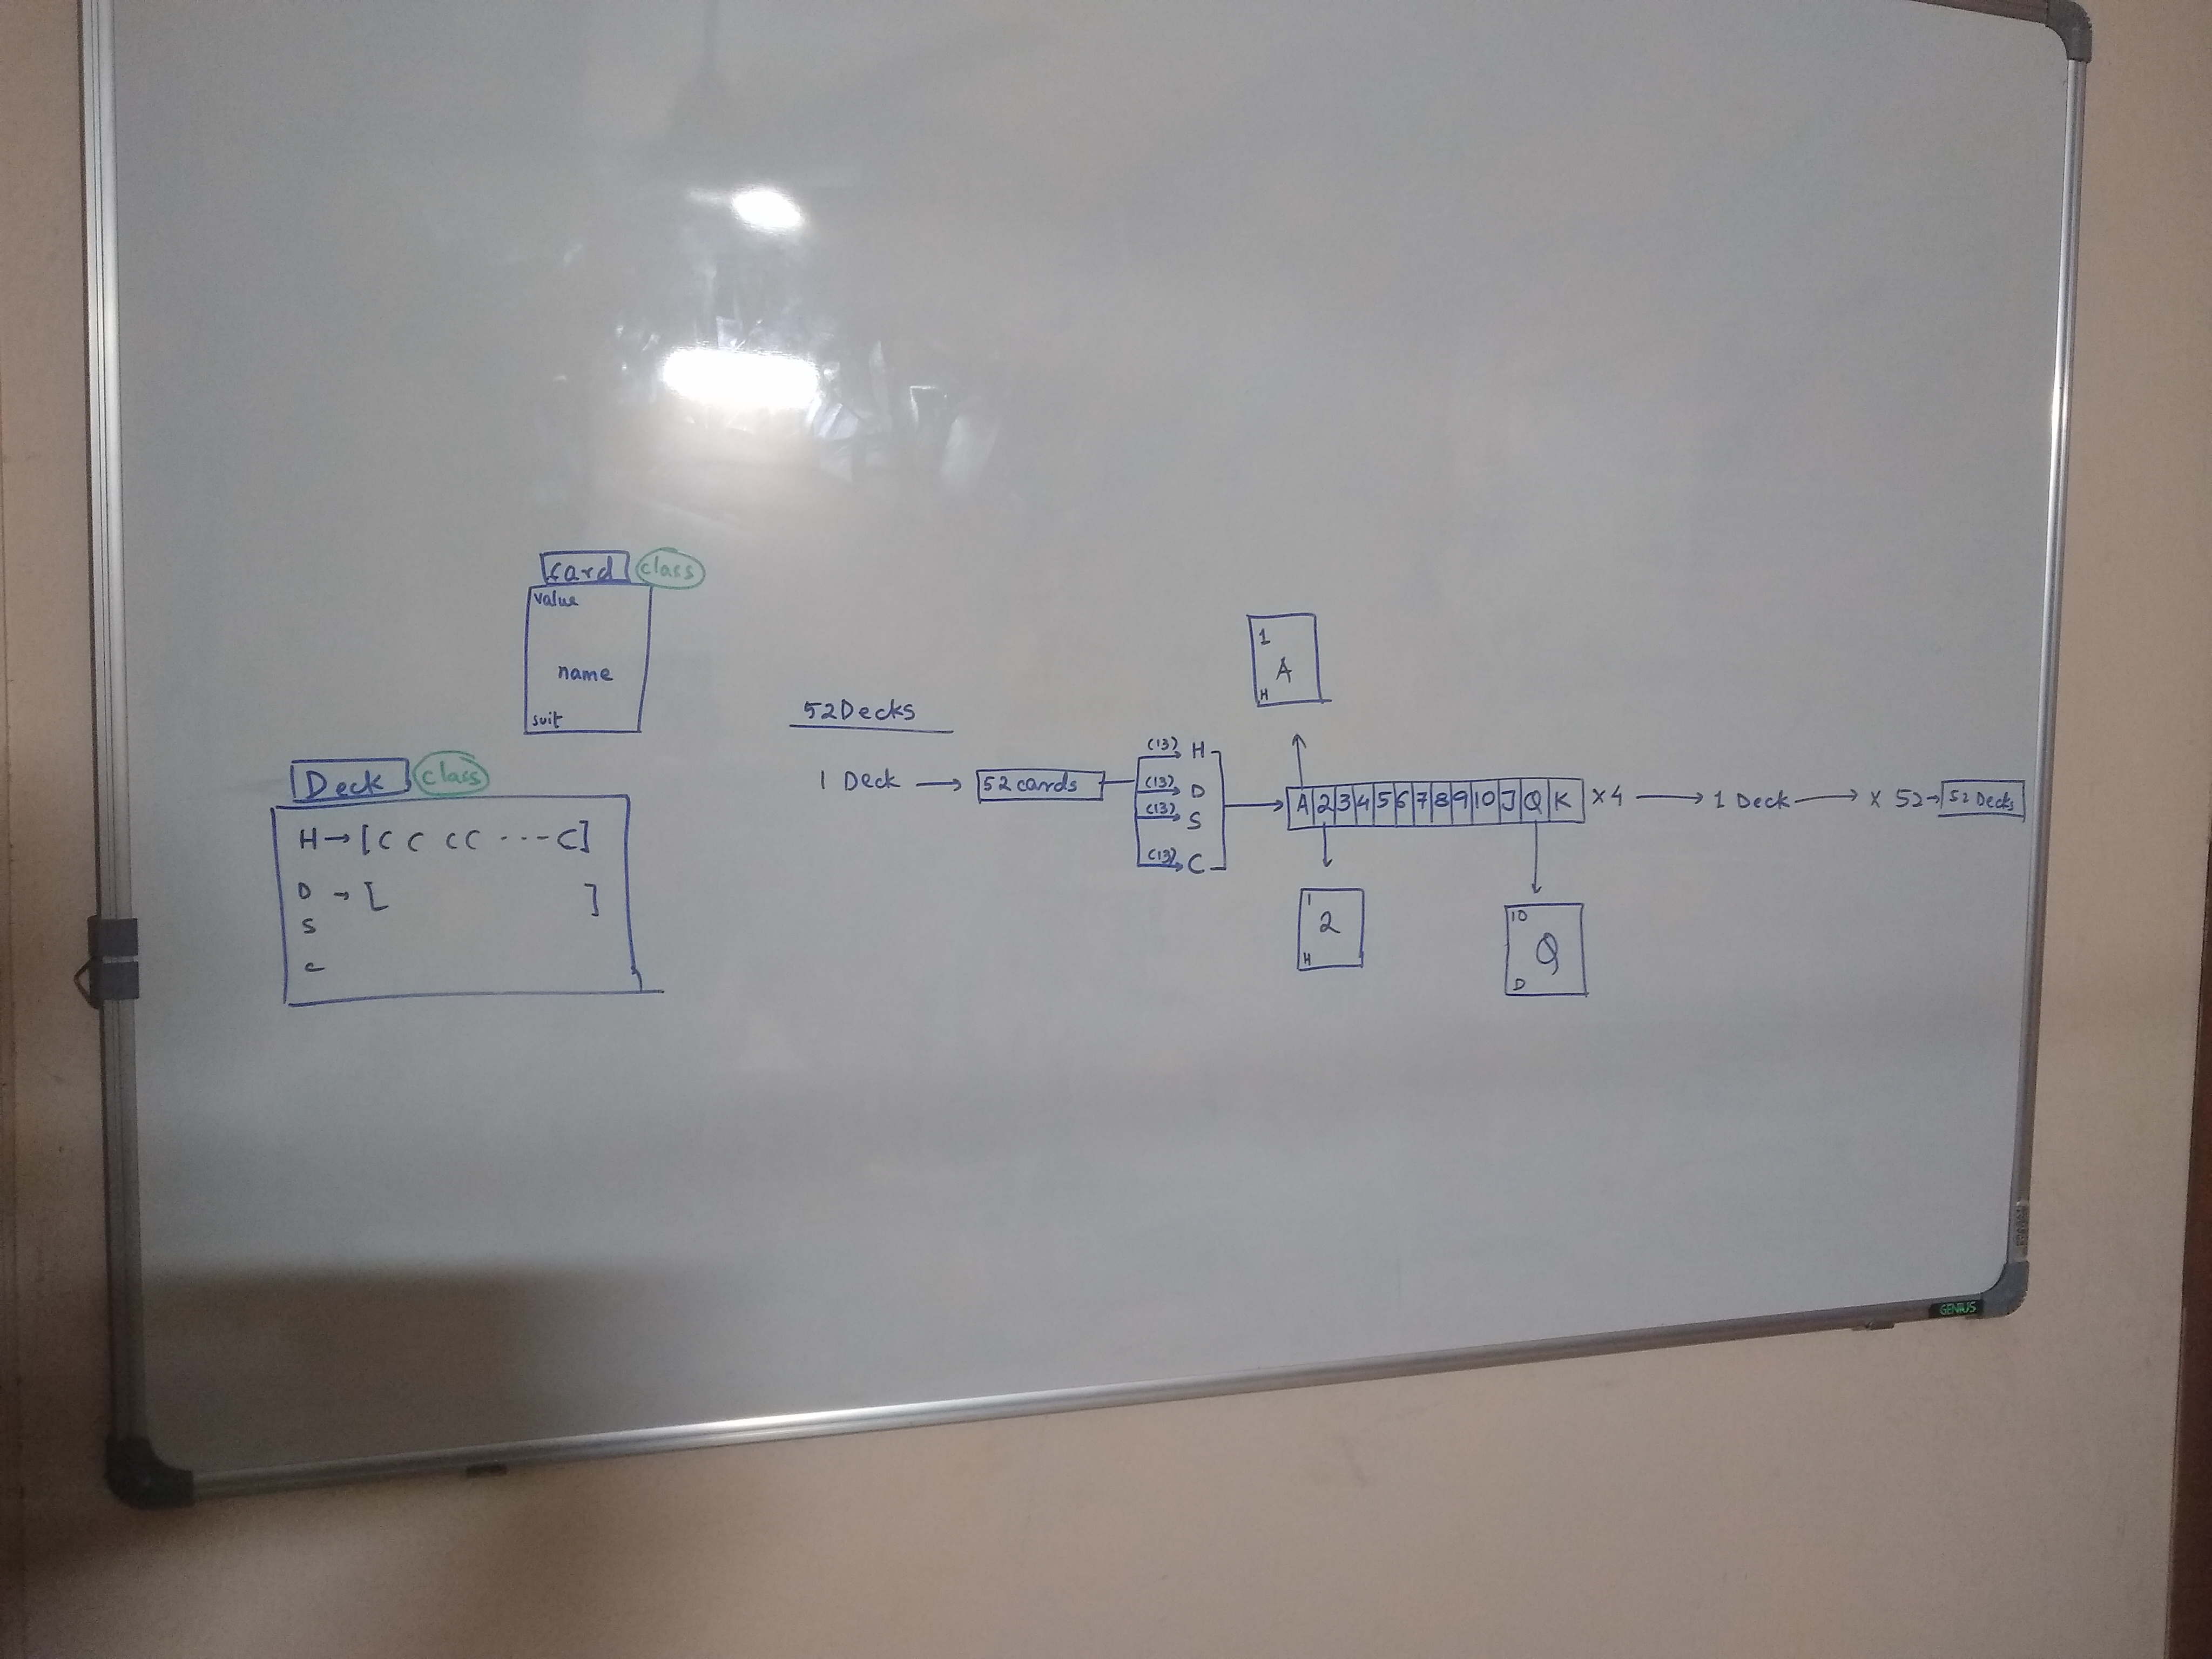 Card class
value
name
suit
Deck class
H → [C C C C ---C]
D → [ ]
S
C
52 Decks
1 Deck → 52 cards
(13) H
(13) D
(13) S
(13) C
A 2 3 4 5 6 7 8 9 10 J Q K x 4 → 1 Deck → x 52 → 52 Decks
1
A
H
1
2
H
10
Q
D
GENIUS